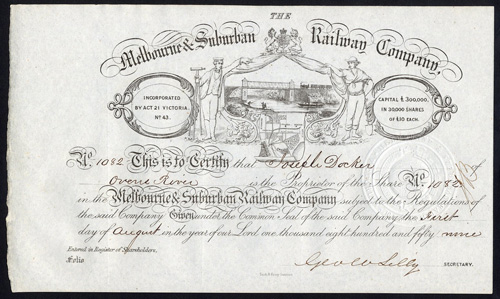 THE
Melbourne & Suburban Railway Company,
INCORPORATED
BY ACT 21 VICTORIA.
No. 43.
CAPITAL £300,000,
IN 30,000 SHARES
OF £10 EACH.
No. 1082 This is to Certify that Joseph Docker of
Ovens River is the Proprietor of the Share No. 1082
in the Melbourne & Suburban Railway Company subject to the Regulations of
the said Company Given under the Common Seal of the said Company, the First
day of August in the year of our Lord one thousand eight hundred and fifty nine
Entered in Register of Shareholders,
Folio
SECRETARY.